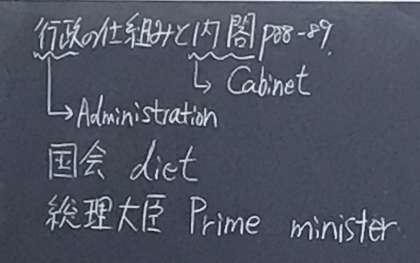 行政の仕組みと内閣 p88-89.
Cabinet
Administration
国会 diet
総理大臣 Prime minister